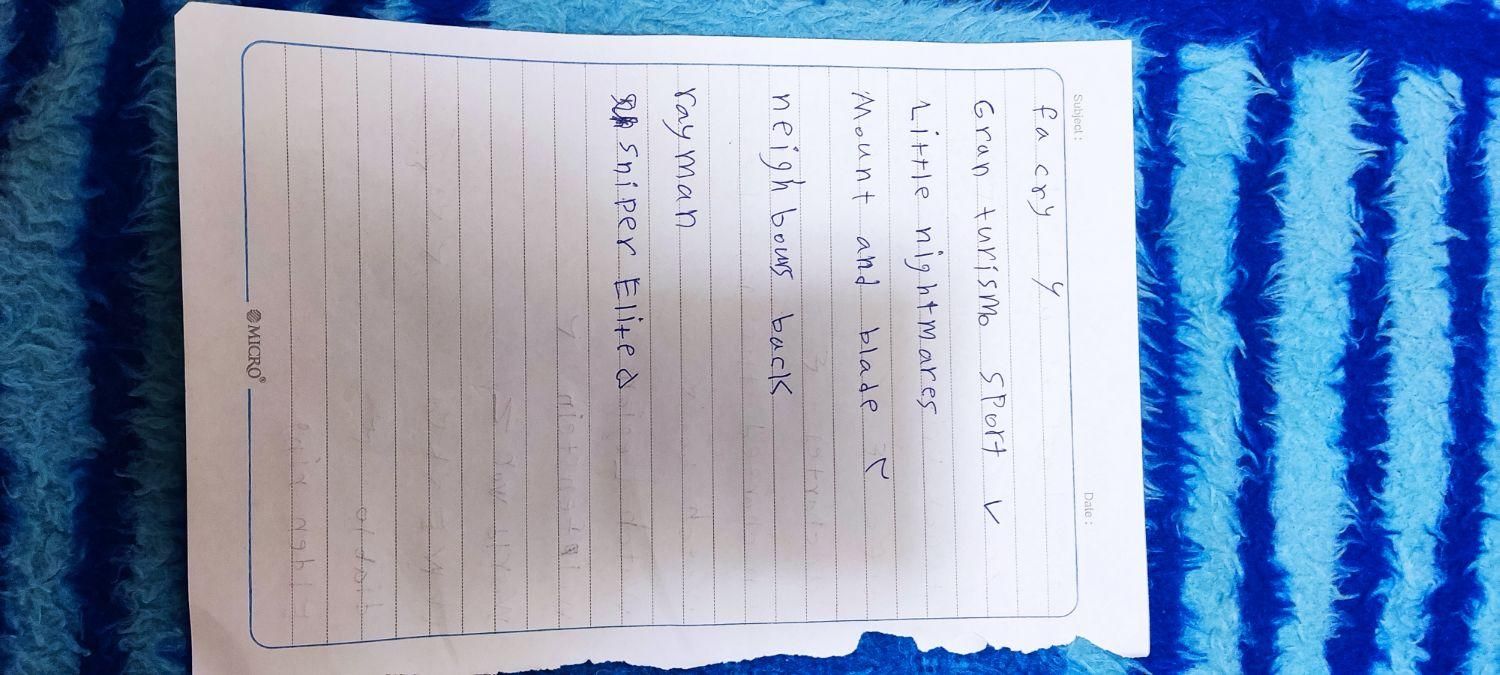 Subject:
Date:
fa cry y
Gran turismo sport v
Little nightmares
Mount and blade
neighbours back
rayman
sniper Elite
MICRO